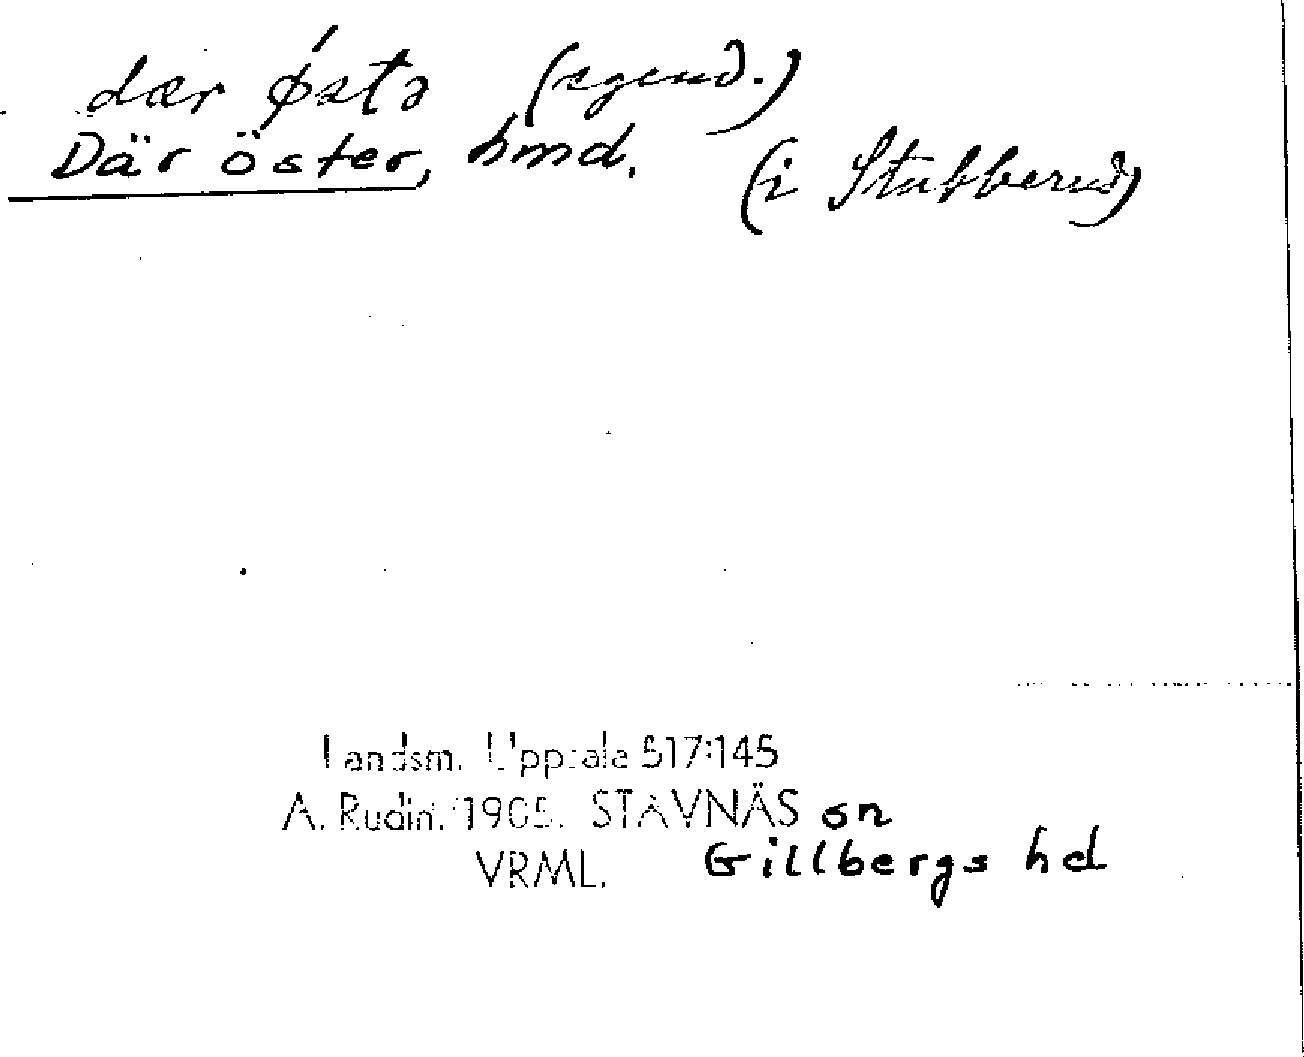 dær ǿstə (egend.)
Där öster, hmd. (i Stubberud)
Landsm. Uppsala 517:145
A. Rudin. 1905. STAVNÄS sn
VRML. Gillbergs hd